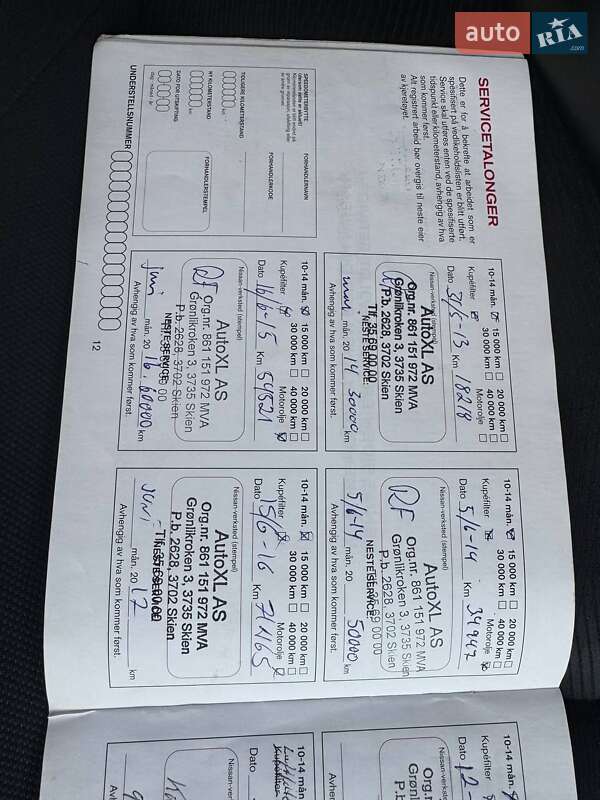 auto RIA .com
SERVICETALONGER
Dette er for å bekrefte at arbeidet som er
spesifisert på vedlikeholdslisten er blitt utført.
Service skal utføres enten ved de spesifiserte
tidspunkt eller kilometerstand, avhengig av hva
som kommer først.
Alt registrert arbeid bør overgis til neste eier
av kjøretøyet.
SPEEDOMETERBYTTE
FORHANDLERNAVN
FORHANDLERKODE
TIDLIGERE KILOMETERSTAND
km
NY KILOMETERSTAND
km
DATO FOR UTSKIFTING
dag måned år
FORHANDLERSTEMPEL
UNDERSTELLSNUMMER
10-14 mån. 15 000 km 20 000 km
30 000 km 40 000 km
Kupéfilter Motorolje
Dato 31/5-13 Km 18218
Nissan-verksted (stempel)
AutoXL AS
Org.nr. 861 151 972 MVA
Grønlikroken 3, 3735 Skien
P.b. 2628, 3702 Skien
Tlf. 35 59 00 00
NESTE SERVICE:
mån. 20 14 30000 km
Avhengig av hva som kommer først.
10-14 mån. 15 000 km 20 000 km
30 000 km 40 000 km
Kupéfilter Motorolje
Dato 5/6-14 Km 34947
Nissan-verksted (stempel)
RF
AutoXL AS
Org.nr. 861 151 972 MVA
Grønlikroken 3, 3735 Skien
P.b. 2628, 3702 Skien
NESTE SERVICE:
5/6-14 mån. 20 50000 km
Avhengig av hva som kommer først.
10-14 mån. 15 000 km 20 000 km
30 000 km 40 000 km
Kupéfilter Motorolje
Dato 16/6-15 Km 54521
Nissan-verksted (stempel)
RF
AutoXL AS
Org.nr. 861 151 972 MVA
Grønlikroken 3, 3735 Skien
P.b. 2628, 3702 Skien
NESTE SERVICE:
juni mån. 20 16. 60000 km
Avhengig av hva som kommer først.
10-14 mån. 15 000 km 20 000 km
30 000 km 40 000 km
Kupéfilter Motorolje
Dato 15/6-16 Km 71165
Nissan-verksted (stempel)
AutoXL AS
Org.nr. 861 151 972 MVA
Grønlikroken 3, 3735 Skien
P.b. 2628, 3702 Skien
Tlf. 35 59 00 00
NESTE SERVICE:
Juni mån. 20 17 km
Avhengig av hva som kommer først.
12
10-14 mån.
Kupéfilter
Dato 12-
Nissan-verksted
Auto
Org.nr.
Grønli
P.b.
10-14 mån.
Kupéfilter
Dato
Nissan-ver